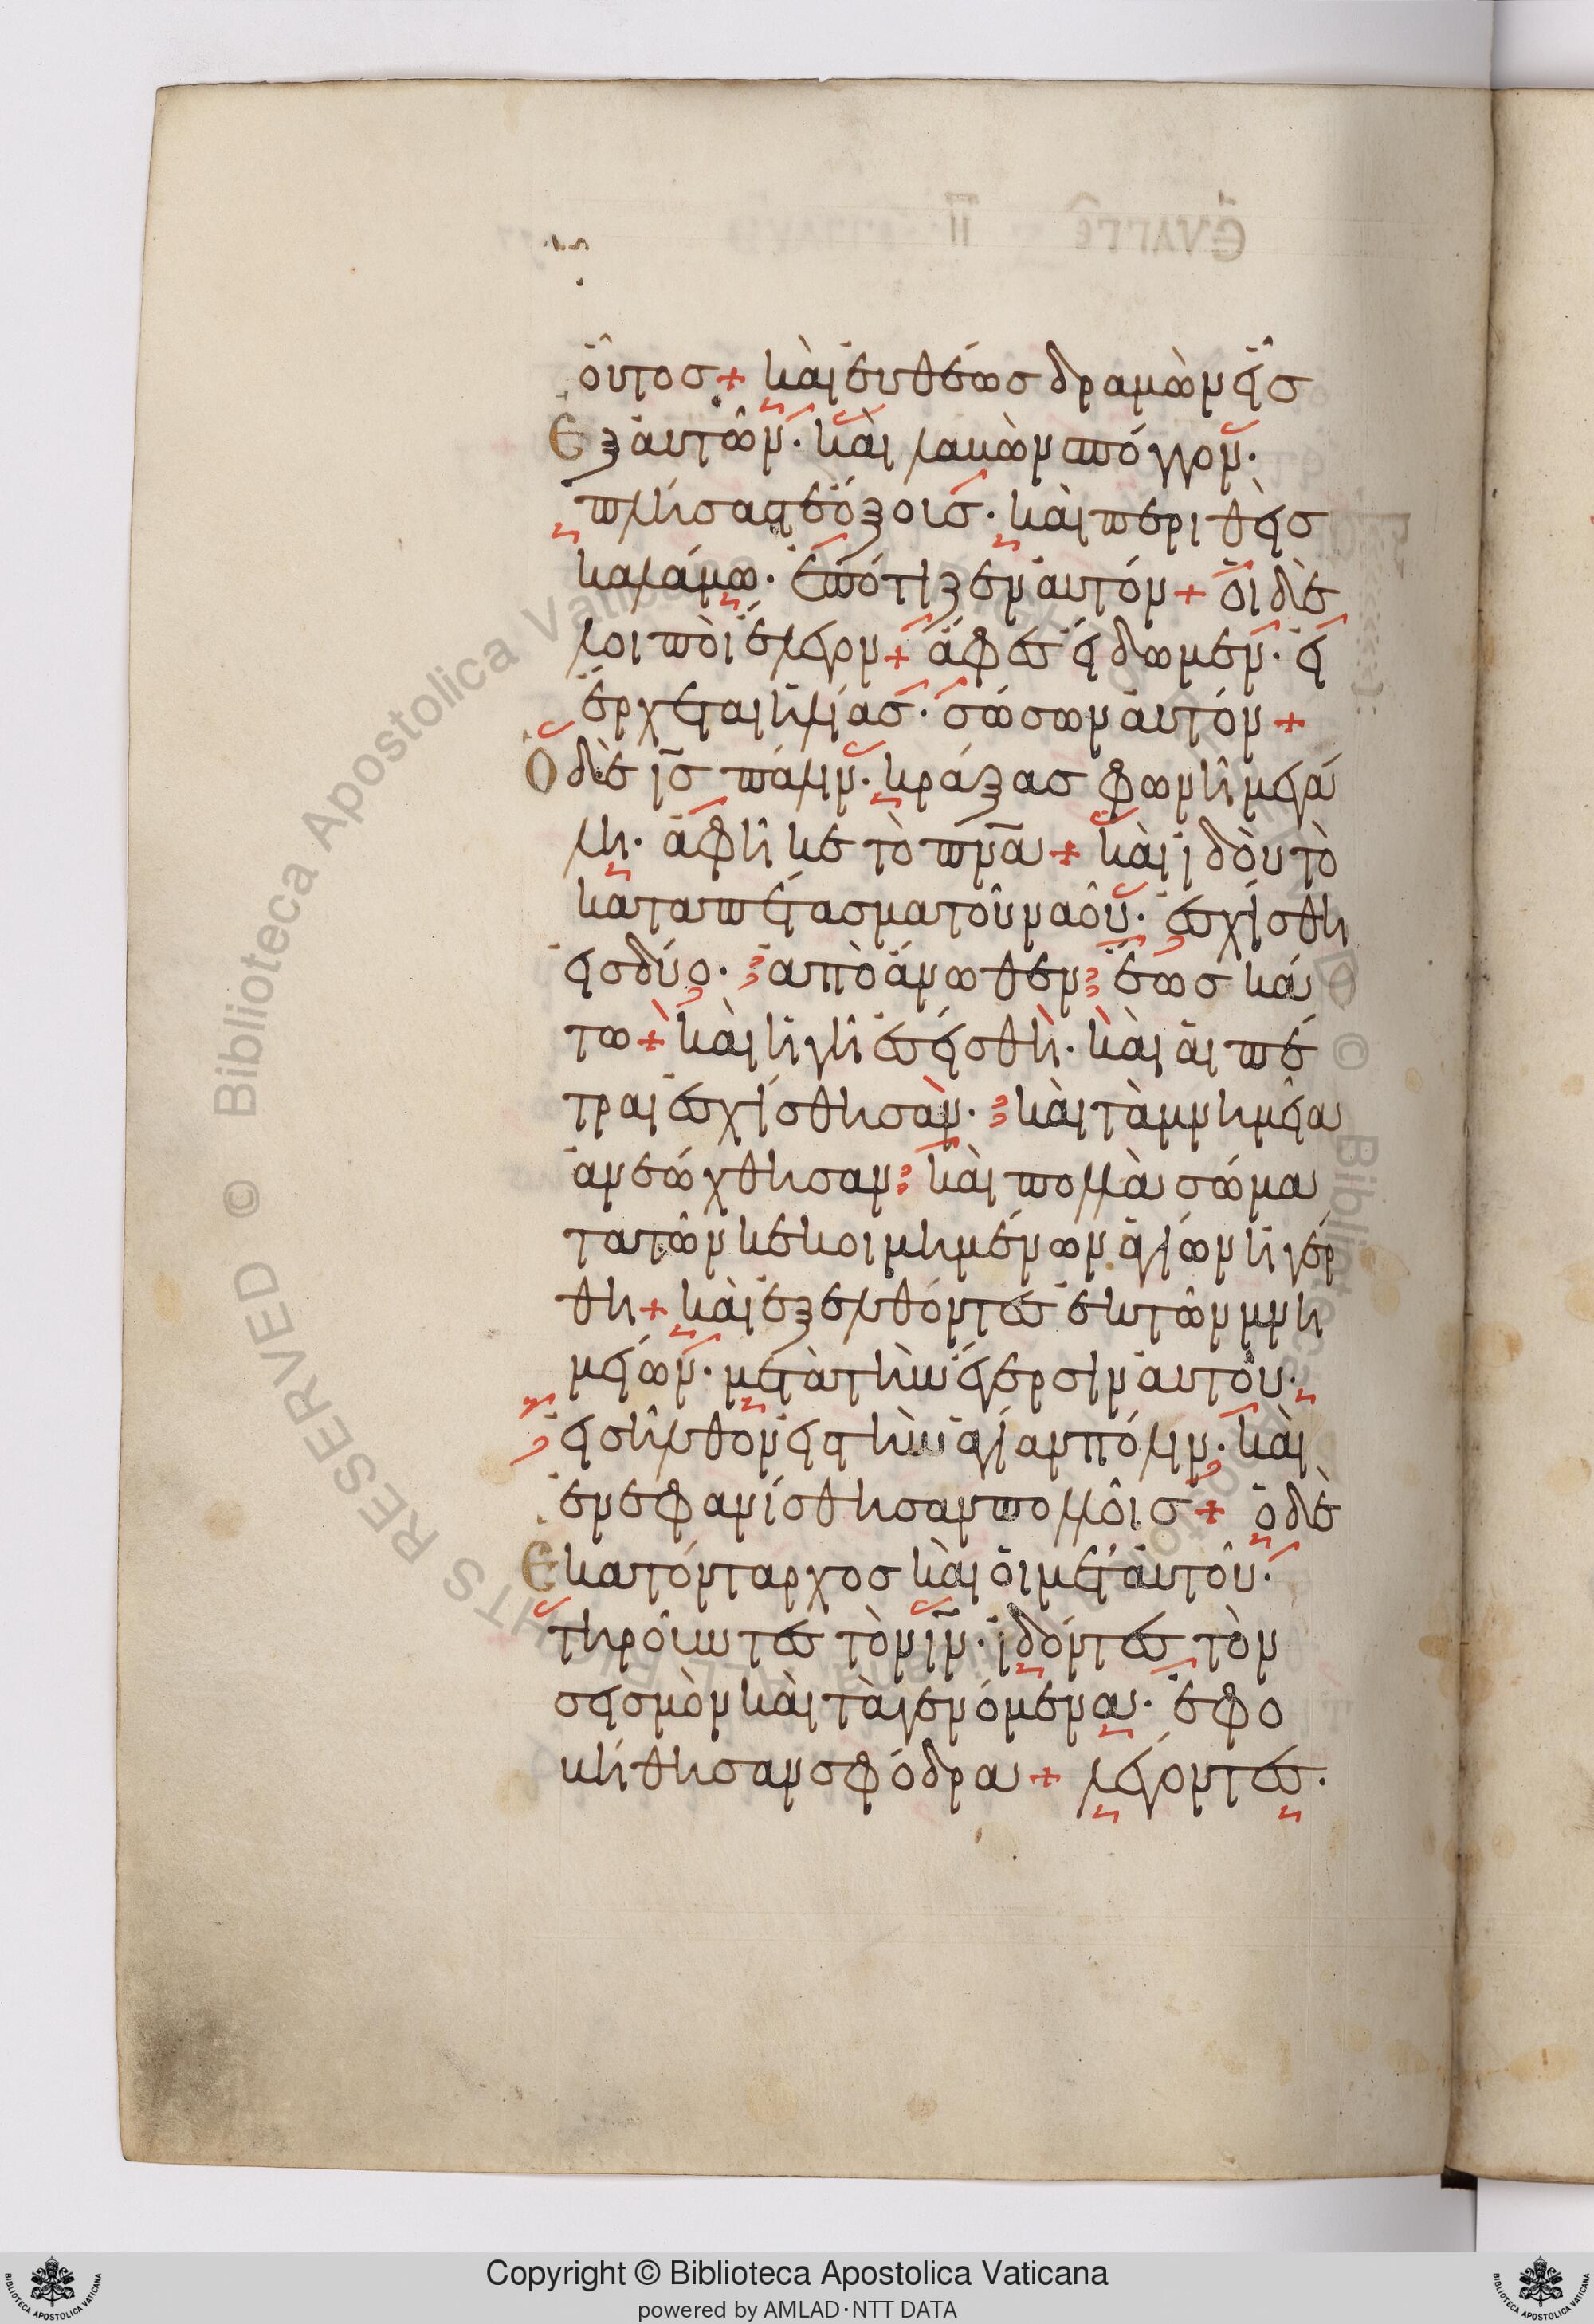 οὗτοσ + καὶ ἐυθέωσ δραμὼν εἷσ
Ἐξ αὐτῶν · καὶ λαβὼν σπόγγον ·
πλήσασ τε ὄξουσ · καὶ περιθεὶσ
καλάμω · ἐπότιζεν αὐτόν + ὁι δὲ
λοιποὶ ἔλεγον + ἄφεσ ἴδωμεν · εἰ
ἔρχεται ἠλίασ · σώσων αὐτόν +
Ὁ δὲ ἰσ πάλιν · κράξασ φωνῆ μεγά
λη · ἀφῆκε τὸ πνα + καὶ ἰδὸυ τὸ
καταπέτασμα τοῦ ναοῦ · ἐσχίσθη
εἰσ δύο · ἀπὸ ἄνωθεν ἕωσ κά
τω + καὶ ἡ γῆ ἐσείσθη · καὶ ἁι πέ
τραι ἐσχίσθησαν · καὶ τὰ μνημεῖα
ἀνεώχθησαν καὶ πολλὰ σώμα
τα τῶν κεκοιμημένων ἁγίων ἠγέρ
θη + καὶ ἐξελθόντεσ ἐκ τῶν μνη
μείων · μετὰ τὴν ἔγερσιν αὐτοῦ ·
εἰσῆλθον εἰσ τὴν ἁγίαν πόλιν · καὶ
ἐνεφανίσθησαν πολλοῖσ + ὁ δὲ
Ἑκατόνταρχοσ καὶ ὁι μετ' αὐτοῦ ·
τηροῦντεσ τὸν ιν · ἰδόντεσ τὸν
σεισμὸν καὶ τὰ γενόμενα · ἐφο
βήθησαν σφόδρα + λέγοντεσ ·
Copyright © Biblioteca Apostolica Vaticana
powered by AMLAD·NTT DATA